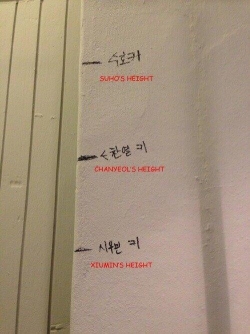 수호키
SUHO'S HEIGHT
찬열 키
CHANYEOL'S HEIGHT
시우민 키
XIUMIN'S HEIGHT